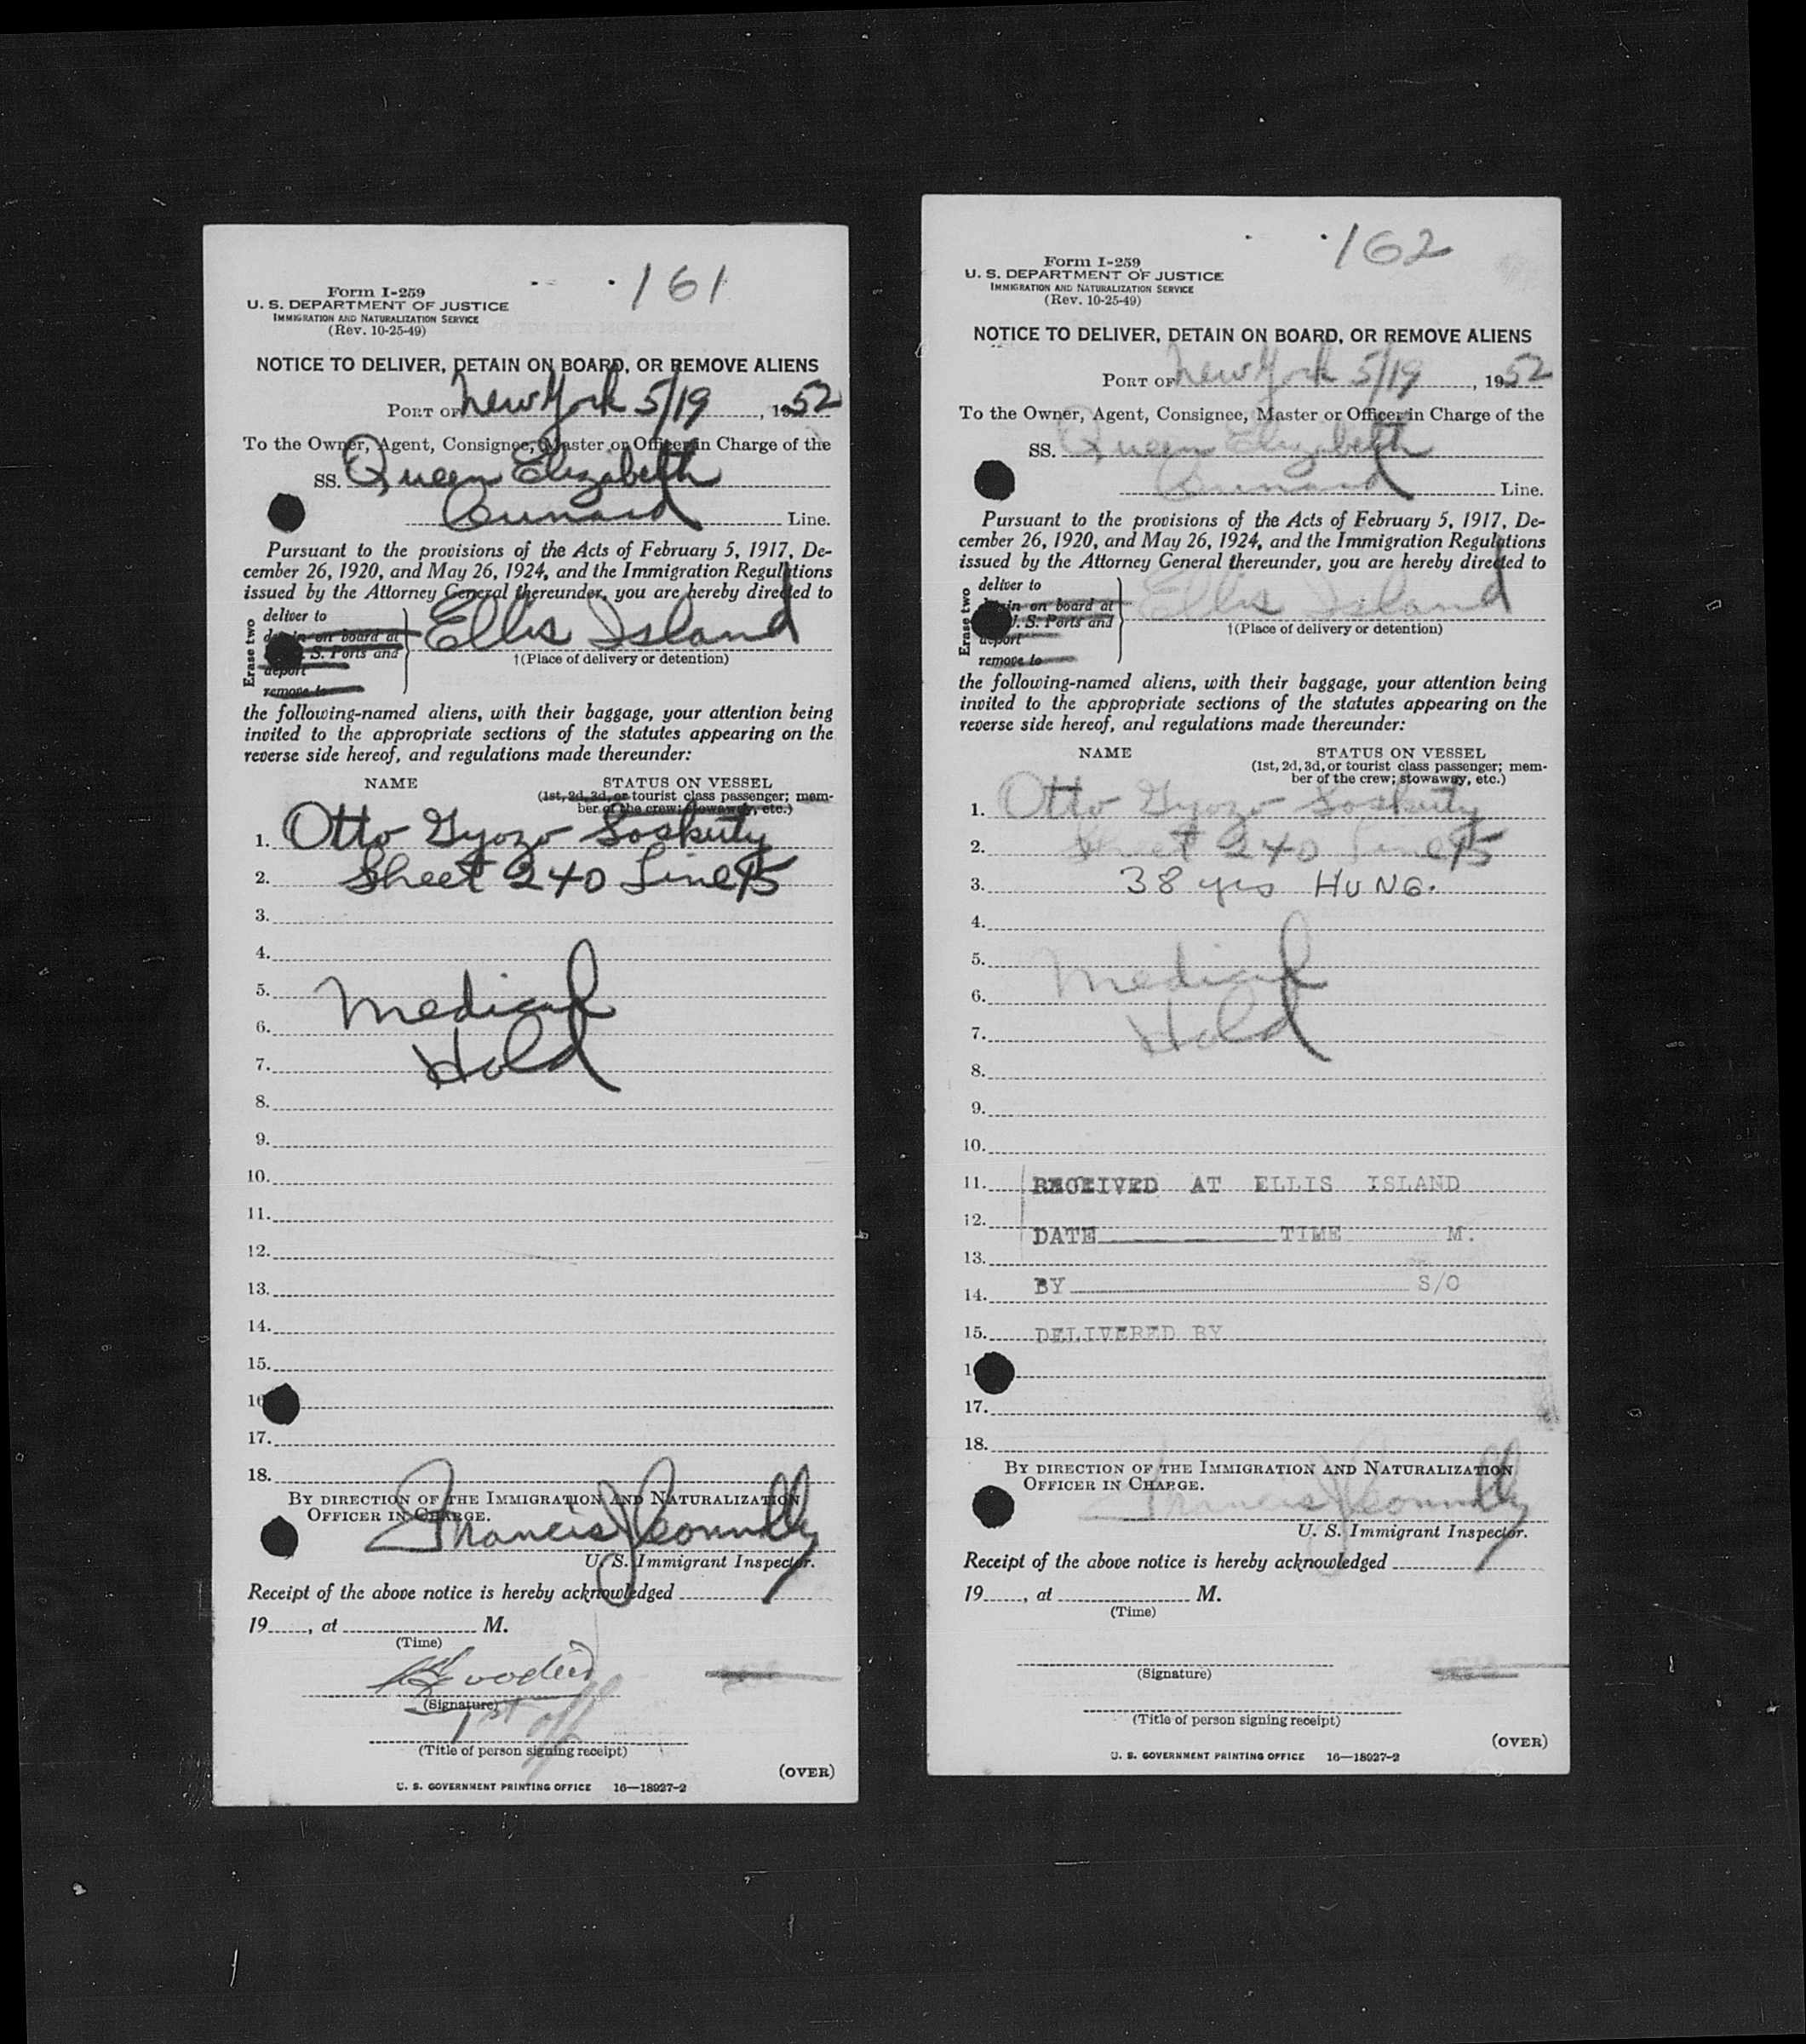 161
Form I-259
U. S. DEPARTMENT OF JUSTICE
IMMIGRATION AND NATURALIZATION SERVICE
(Rev. 10-25-49)
NOTICE TO DELIVER, DETAIN ON BOARD, OR REMOVE ALIENS
PORT OF New York 5/19, 1952
To the Owner, Agent, Consignee, Master or Officer in Charge of the
SS. Queen Elizabeth
Cunard Line.
Pursuant to the provisions of the Acts of February 5, 1917, De-
cember 26, 1920, and May 26, 1924, and the Immigration Regulations
issued by the Attorney General thereunder, you are hereby directed to
Erase two
deliver to
on board at
S. Ports and
deport
remove to
Ellis Island
†(Place of delivery or detention)
the following-named aliens, with their baggage, your attention being
invited to the appropriate sections of the statutes appearing on the
reverse side hereof, and regulations made thereunder:
NAME STATUS ON VESSEL
(1st, 2d, 3d, or tourist class passenger; mem-
ber of the crew; stowaway, etc.)
1. Otto Gyozo Soskuty
2. Sheet 240 Line 15
3.
4.
5. Medical
6.
7. Hold
8.
9.
10.
11.
12.
13.
14.
15.
16
17.
18.
BY DIRECTION OF THE IMMIGRATION AND NATURALIZATION
OFFICER IN CHARGE.
Francis J Connolly
U. S. Immigrant Inspector.
Receipt of the above notice is hereby acknowledged
19, at M.
(Time)
(Signature)
1st off
(Title of person signing receipt)
(OVER)
U. S. GOVERNMENT PRINTING OFFICE 16—18927-2
162
Form I-259
U. S. DEPARTMENT OF JUSTICE
IMMIGRATION AND NATURALIZATION SERVICE
(Rev. 10-25-49)
NOTICE TO DELIVER, DETAIN ON BOARD, OR REMOVE ALIENS
PORT OF New York 5/19, 1952
To the Owner, Agent, Consignee, Master or Officer in Charge of the
SS. Queen Elizabeth
Cunard Line.
Pursuant to the provisions of the Acts of February 5, 1917, De-
cember 26, 1920, and May 26, 1924, and the Immigration Regulations
issued by the Attorney General thereunder, you are hereby directed to
Erase two
deliver to
on board at
S. Ports and
deport
remove to
Ellis Island
†(Place of delivery or detention)
the following-named aliens, with their baggage, your attention being
invited to the appropriate sections of the statutes appearing on the
reverse side hereof, and regulations made thereunder:
NAME STATUS ON VESSEL
(1st, 2d, 3d, or tourist class passenger; mem-
ber of the crew; stowaway, etc.)
1. Otto Gyozo Soskuty
2. Sheet 240 Line 15
3. 38 yrs HUNG.
4.
5. Medical
6.
7. Hold
8.
9.
10.
11. RECEIVED AT ELLIS ISLAND
12.
DATE TIME M.
13.
BY S/O
14.
15. DELIVERED BY
1
17.
18.
BY DIRECTION OF THE IMMIGRATION AND NATURALIZATION
OFFICER IN CHARGE.
Francis J Connolly
U. S. Immigrant Inspector.
Receipt of the above notice is hereby acknowledged
19, at M.
(Time)
(Signature)
(Title of person signing receipt)
(OVER)
U. S. GOVERNMENT PRINTING OFFICE 16—18927-2